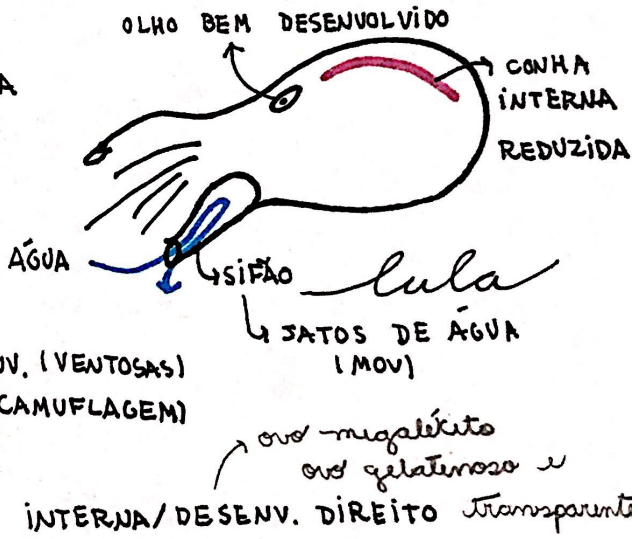 OLHO BEM DESENVOLVIDO
A
CONHA
INTERNA
REDUZIDA
ÁGUA
SIFÃO
lula
JATOS DE ÁGUA
(MOV)
UV. (VENTOSAS)
CAMUFLAGEM)
ovo megalécito
ovo gelatinoso e
INTERNA/DESENV. DIREITO transparente